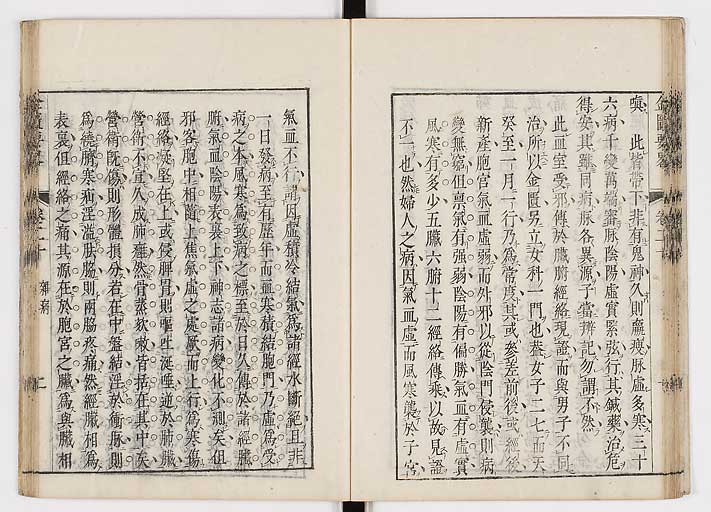 嗔此皆帶下非有鬼神久則羸瘦脉虛多寒三十
六病千變萬端審脉陰陽虛實緊弦行其鍼藥治危
得安其雖同病脉各異源子當辨記勿謂不然
此血室受邪傳於臟腑經絡現證而與男子不同
治所以金匱另立女科一門也蓋女子二七而天
癸至一月一行乃爲常度其或參差前後或經後
新產胞宮氣血虛弱而外邪以從陰門侵襲則病
變無窮但禀氣有强弱陰陽有偏勝氣血有虛實
風寒有多少五臟六腑十二經絡傳乘以故見證
不一也然婦人之病因氣血虛而風寒襲於子宮
氣血不行謂因虛積冷結氣爲諸經水斷絕且非
一日發病至有歷年而血寒積結胞門乃虛爲受
病之本風寒爲致病之標至於日久傳於諸經臟
腑氣血陰陽表裏上下神志諸病變化不測矣但
邪客胞中相蓄上焦氣虛之處厥而上行爲寒傷
經絡凝堅在上或侵脾胃則嘔吐涎唾逆於肺臟
營衛不宣久成肺癰然骨蒸欬嗽皆括在其中矣
營衛既傷則形體損分若在中盤結淫於衝脉則
爲繞臍寒疝淫溢肤脇則兩脇疼痛然經臟相爲
表裏但經絡之痛其源在於胞宮之臟爲與臟相
卷二十
雜病
二